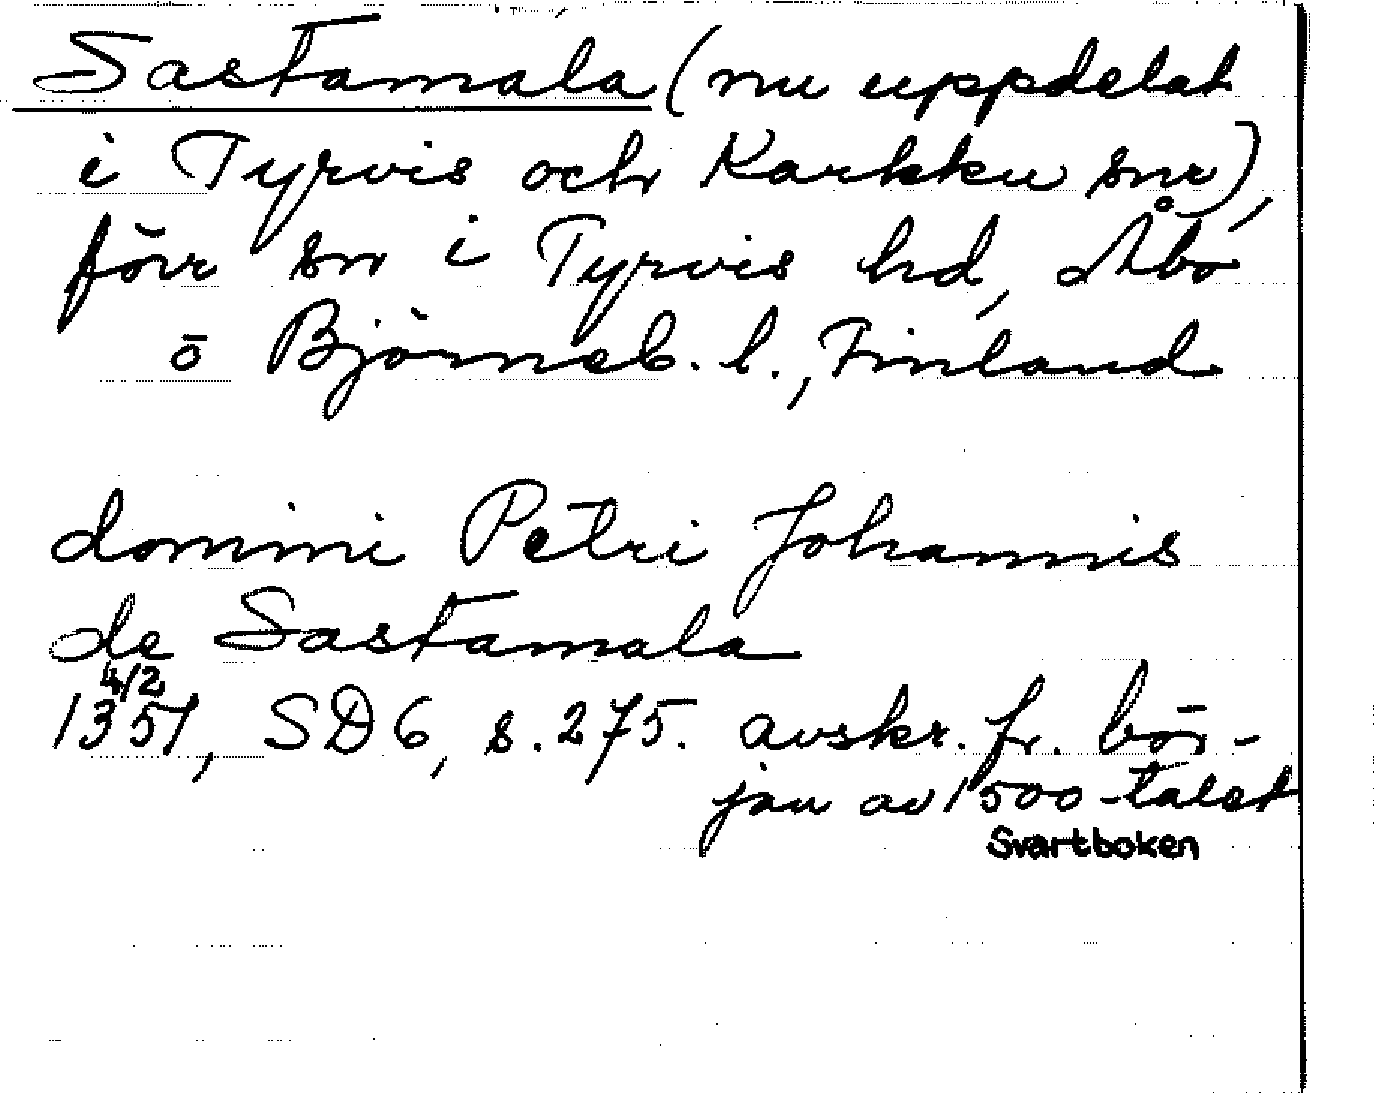 Sastamala (nu uppdelat
i Tyrvis och Karkku snr),
förr sn i Tyrvis hd, Åbo
o Björneb. l., Finland
domini Petri Johannis
de Sastamala
4/2
1351, SD 6, s. 275. avskr. fr. bör-
jan av 1500-talet
Svartboken